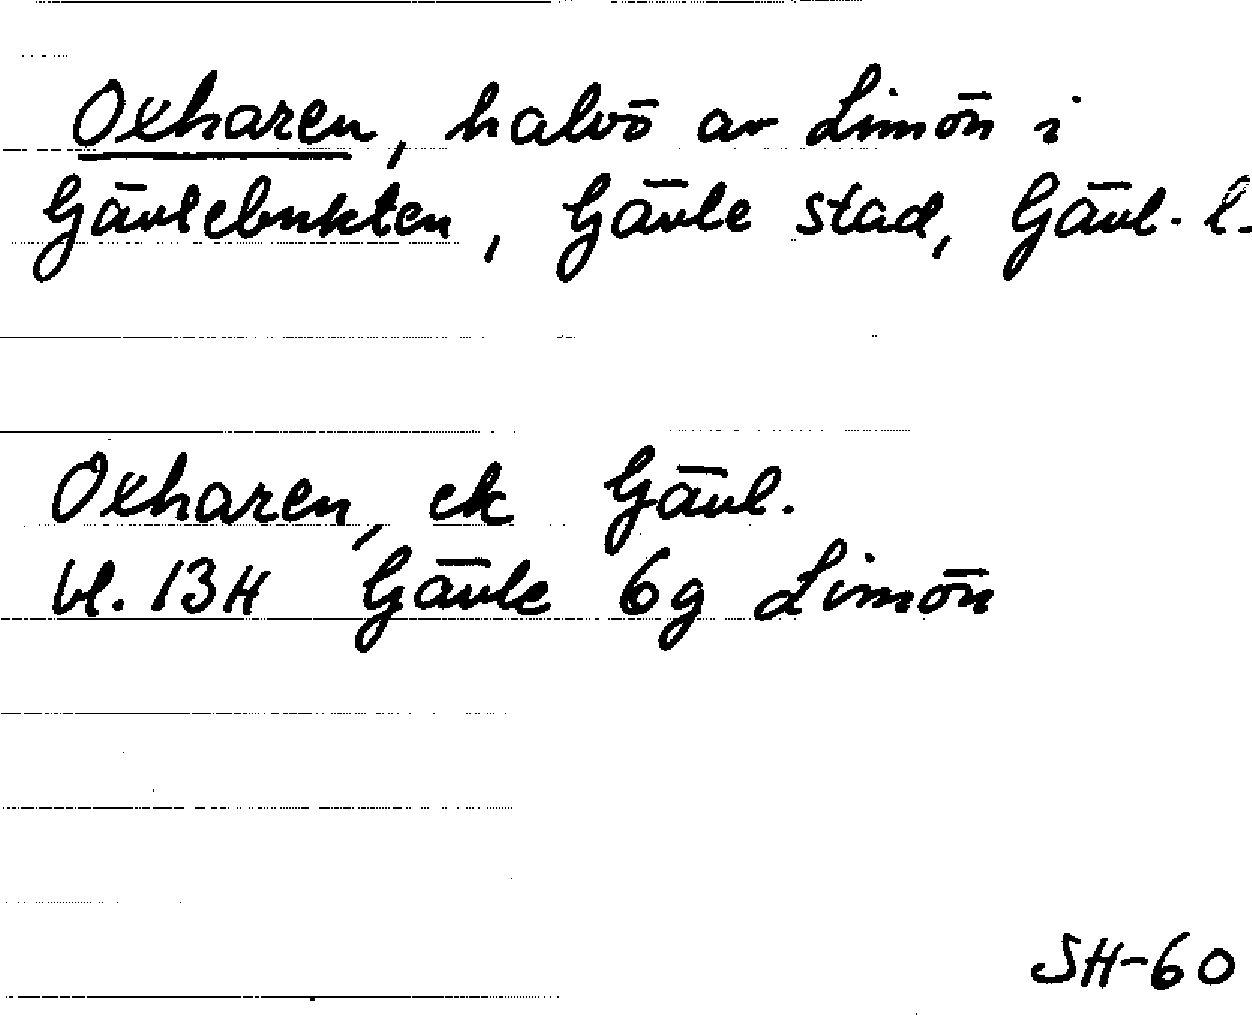 Oxharen, halvö av Limön i
Gävlebukten, Gävle stad, Gävl. l.
Oxharen, ek Gävl.
bl. 13H Gävle 6g Limön
SH-60